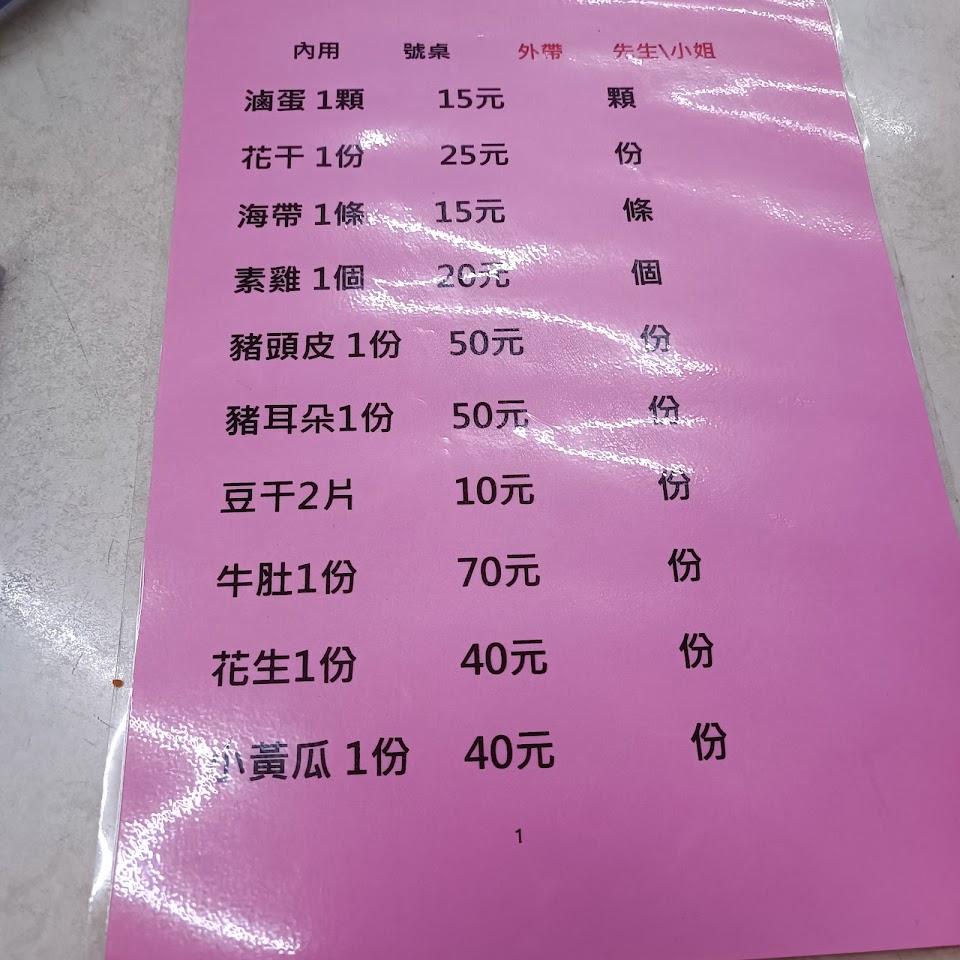 內用 號桌 外帶 先生\小姐
滷蛋 1顆 15元 顆
花干 1份 25元 份
海帶 1條 15元 條
素雞 1個 20元 個
豬頭皮 1份 50元 份
豬耳朵1份 50元 份
豆干2片 10元 份
牛肚1份 70元 份
花生1份 40元 份
小黃瓜 1份 40元 份
1